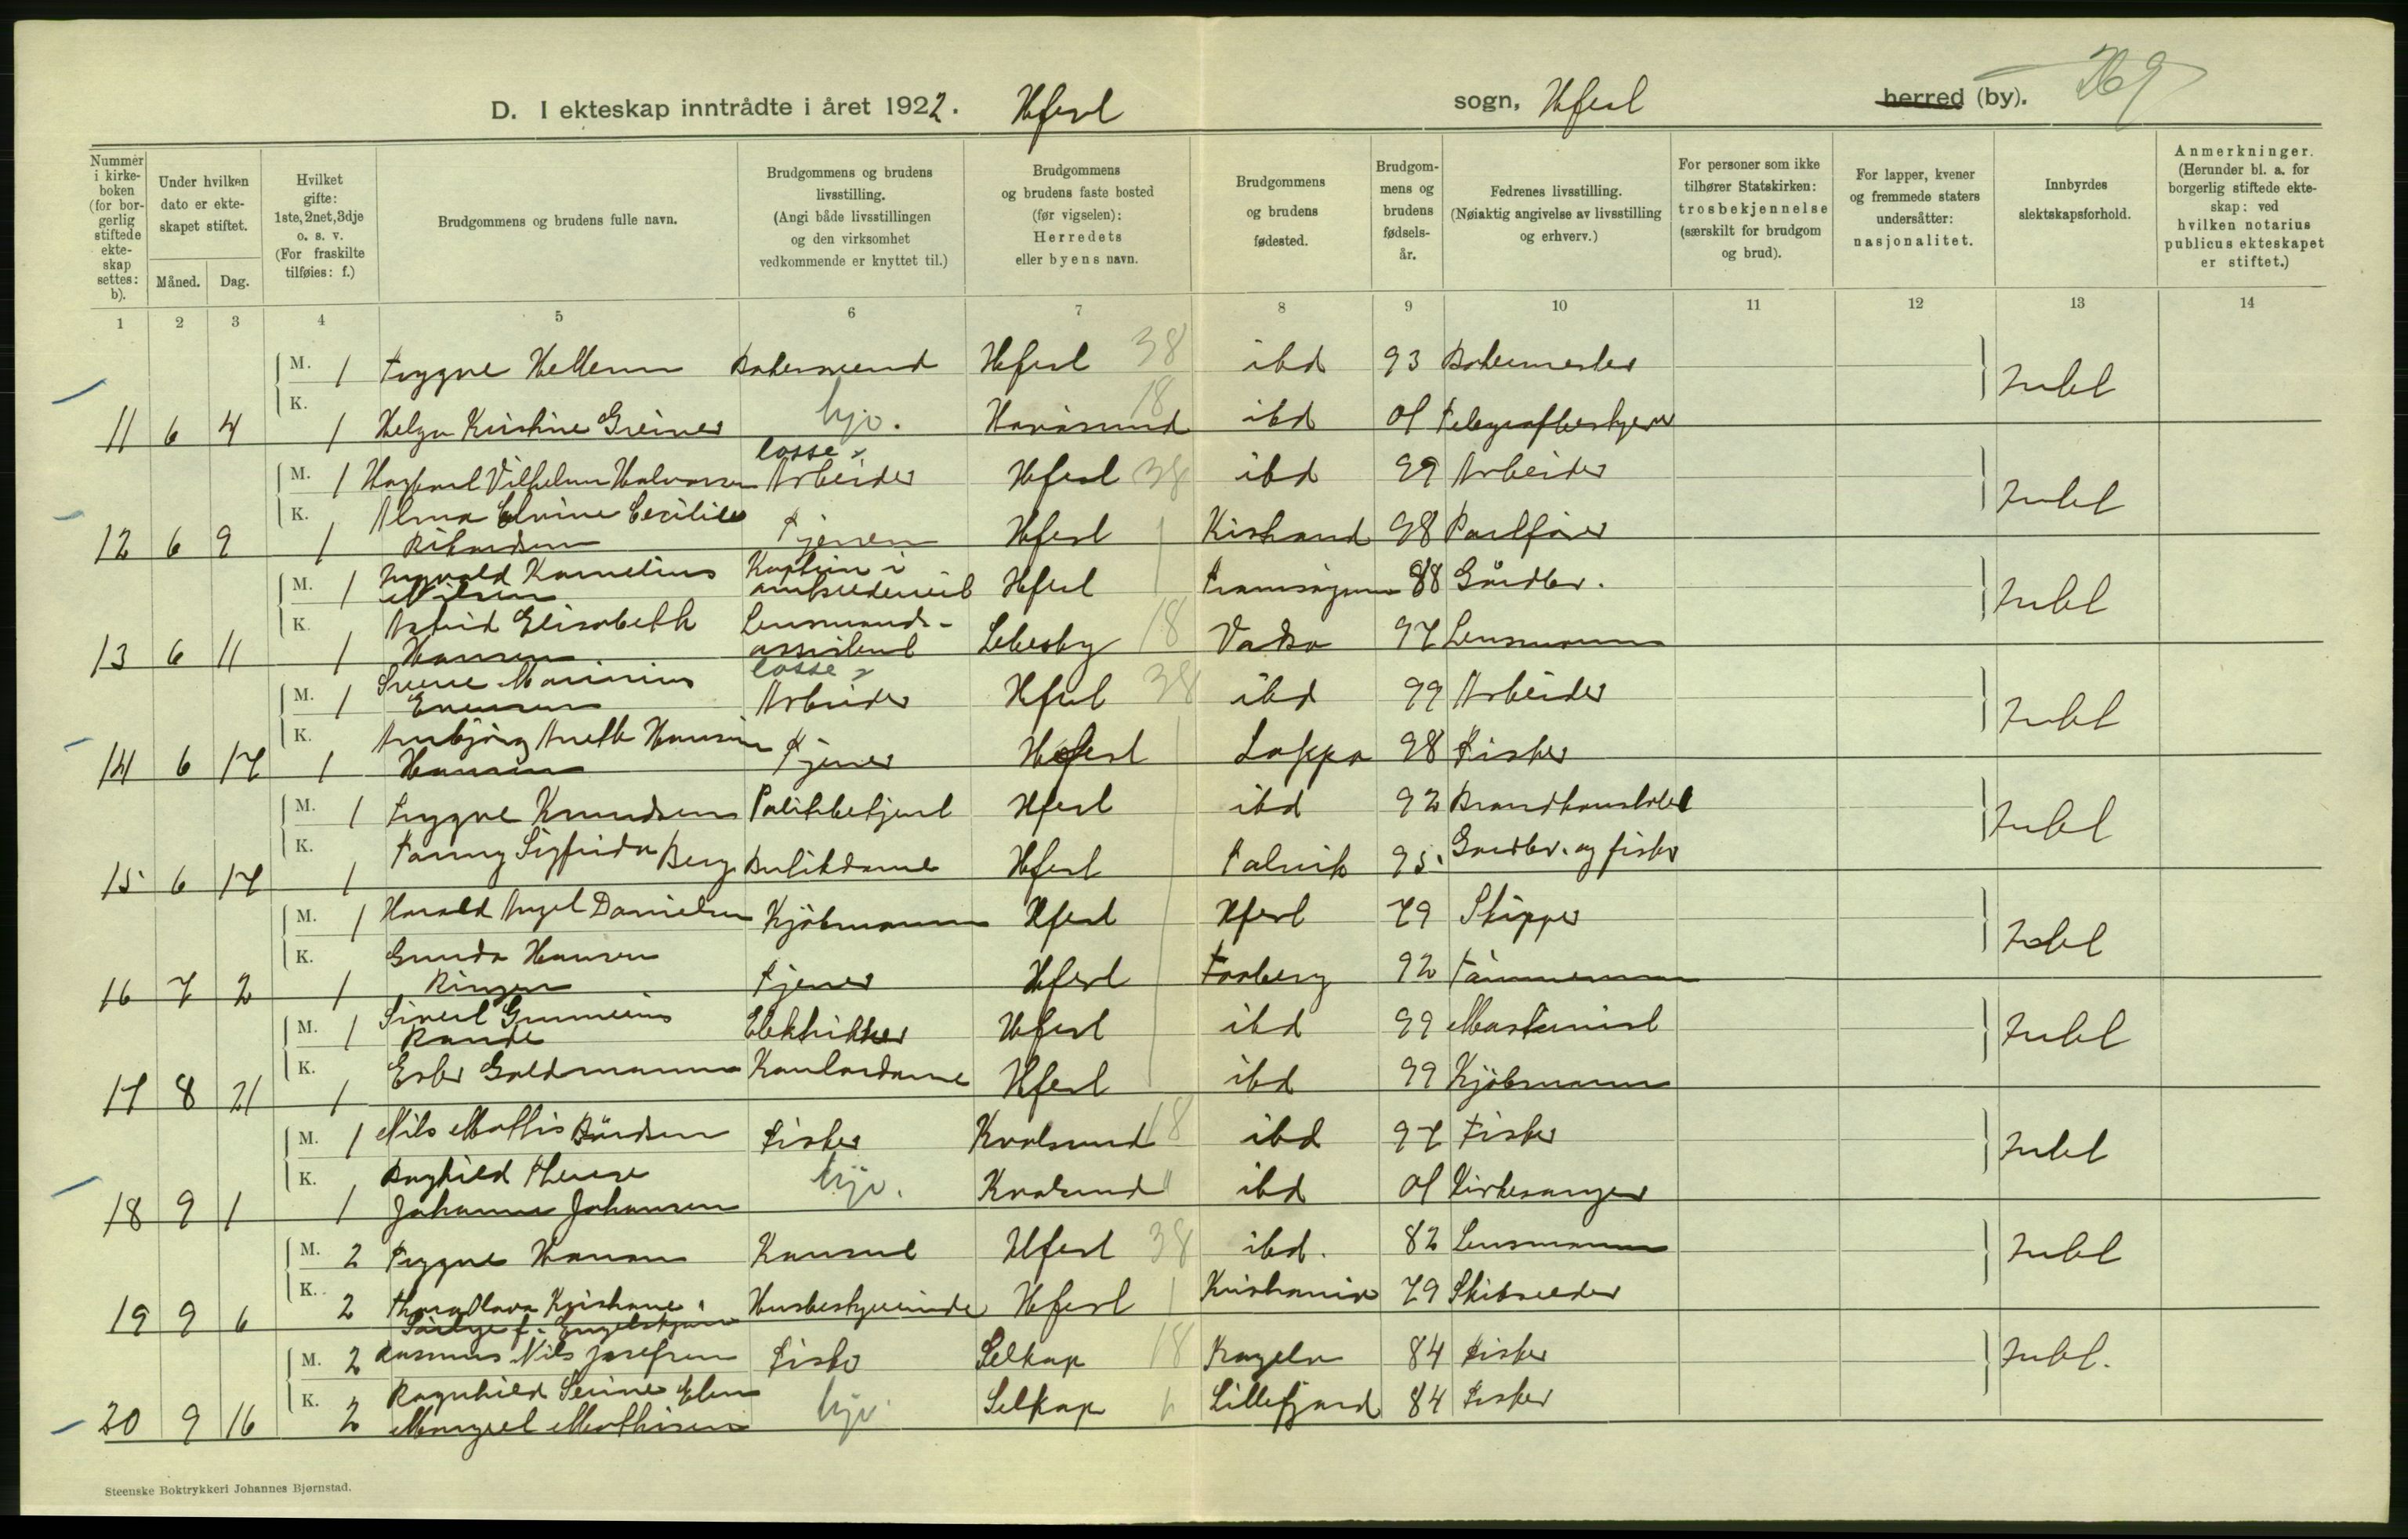 D. I ekteskap inntrådte i året 1922. Hfest sogn, Hfest herred (by). 269
Nummer i kirkeboken (for borgerlig stiftede ekteskap settes: b).
Under hvilken dato er ekteskapet stiftet.
Måned. Dag.
Hvilket gifte: 1ste, 2net, 3dje o. s. v. (For fraskilte tilføies: f.)
Brudgommens og brudens fulle navn.
Brudgommens og brudens livsstilling. (Angi både livsstillingen og den virksomhet vedkommende er knyttet til.)
Brudgommens og brudens faste bosted (før vigselen): Herredets eller byens navn.
Brudgommens og brudens fødested.
Brudgommens og brudens fødselsår.
Fedrenes livsstilling. (Nøiaktig angivelse av livsstilling og erhverv.)
For personer som ikke tilhører Statskirken: trosbekjennelse (særskilt for brudgom og brud).
For lapper, kvener og fremmede staters undersåtter: nasjonalitet.
Innbyrdes slektskapsforhold.
Anmerkninger. (Herunder bl. a. for borgerlig stiftede ekteskap: ved hvilken notarius publicus ekteskapet er stiftet.)
1 2 3 4 5 6 7 8 9 10 11 12 13 14
M. 1 Trygve Hellem Bakersvend Hfest 38 ibd 93 Bakermester Intet
11 6 4 K. 1 Helga Kristine Greiner hjv. Havøsund 18 ibd 01 Telegrafbestyrer
M. 1 Hagbart Vilhelm Halvorsen losse Arbeider Hfest 38 ibd 99 Arbeider Intet
12 6 9 K. 1 Alma Elvine Cecilie Rikardsen Tjener Hfest 1 Kistrand 98 Postfører
M. 1 Ingvald Kornelius Nilsen Kaptein i Hfest 1 88 Gårdbr. Intet
13 6 11 K. 1 Astrid Elisabeth Hansen Lensmands-assistent Lebesby 18 Vadsø 97 Lensmann
M. 1 Sverre Marinius Evensen losse Arbeider Hfest 38 ibd 99 Arbeider Intet
14 6 17 K. 1 Annbjørg Aneth Hansen Hansen Tjener Hfest Loppa 98 Fisker
M. 1 Trygve Knudsen Politibetjent Hfest ibd 92 Brandkonstabel Intet
15 6 17 K. 1 Fanny Sigfrida Berg Butikdame Hfest Talvik 95. Gårdbr. og fisker
M. 1 Harald Angel Danielsen Kjøbmann Hfest Hfest 79 Skipper Intet
16 7 2 K. 1 Gunda Hansen Ringen Tjener Hfest Fåberg 92 Tømmermann
M. 1 Sivert Gunnerius Rande Elektriker Hfest ibd 99 Maskinist Intet
17 8 21 K. 1 Ester Goldmann Kontordame Hfest ibd 99 Kjøbmann
M. 1 Nils Mathis Bårdsen Fisker Kvalsund 18 ibd 97 Fisker Intet
18 9 1 K. 1 Raghild Therese Johanne Johansen hjv. Kvalsund " ibd 01 Kirkesanger
M. 2 Trygve Hanson Konsul Hfest 38 ibd. 82 Lensmann Intet
19 9 6 K. 2 Thora Olava Kristiane f. Engelskjøn Husbestyrerinde Hfest 1 Kristiania 79 Skibsreder
M. 2 Rasmus Nils Josefsen Fisker Selkop 18 84 Fisker Intet.
20 9 16 K. 2 Ragnhild Serine Elen Margret Mathisen hjv. Selkop " Lillefjord 84 Fisker
Steenske Boktrykkeri Johannes Bjørnstad.